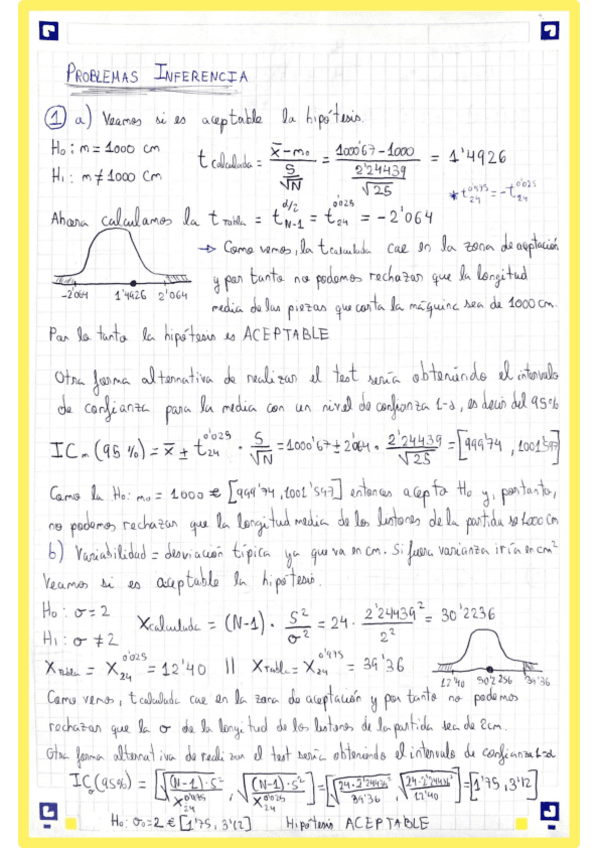 PROBLEMAS INFERENCIA
① a) Veamos si es aceptable la hipótesis.
H₀: m = 1000 cm
H₁: m ≠ 1000 cm
t calculada = (x̄ - m₀) / (S/√N) = (1000'67 - 1000) / (2'24439/√25) = 1'4926
* t₂₄^0'975 = -t₂₄^0'025
Ahora calculamos la t Tabla = t_N-1^α/2 = t₂₄^0'025 = -2'064
-2'064 1'4926 2'064
→ Como vemos, la t calculada cae en la zona de aceptación
y por tanto no podemos rechazar que la longitud
media de las piezas que corta la máquina sea de 1000 cm.
Por lo tanto la hipótesis es ACEPTABLE
Otra forma alternativa de realizar el test sería obteniendo el intervalo
de confianza para la media con un nivel de confianza 1-α, es decir del 95%
IC_m (95%) = x̄ ± t₂₄^0'025 · S/√N = 1000'67 ± 2'064 · 2'24439/√25 = [999'74, 1001'597]
Como la H₀: m₀ = 1000 ∈ [999'74, 1001'597] entonces acepto H₀ y, por tanto,
no podemos rechazar que la longitud media de los listones de la partida se 1000 cm
b) Variabilidad = desviación típica ya que va en cm. Si fuera varianza iría en cm²
Veamos si es aceptable la hipótesis.
H₀: σ = 2
H₁: σ ≠ 2
X calculada = (N-1) · S²/σ² = 24 · 2'24439²/2² = 30'2236
X Tabla = X₂₄^0'025 = 12'40 || X Tabla = X₂₄^0'975 = 39'36
12'40 39'36
Como vemos, t calculada cae en la zona de aceptación y por tanto no podemos
rechazar que la σ de la longitud de los listones de la partida sea de 2cm.
Otra forma alternativa de realizar el test sería obteniendo el intervalo de confianza 1-α
IC_σ (95%) = [√((N-1)·S²/X₂₄^0'975), √((N-1)·S²/X₂₄^0'025)] = [√(24·2'24439²/39'36), √(24·2'24439²/12'40)] = [1'75, 3'12]
H₀: σ₀=2 ∈ [1'75, 3'12] Hipótesis ACEPTABLE